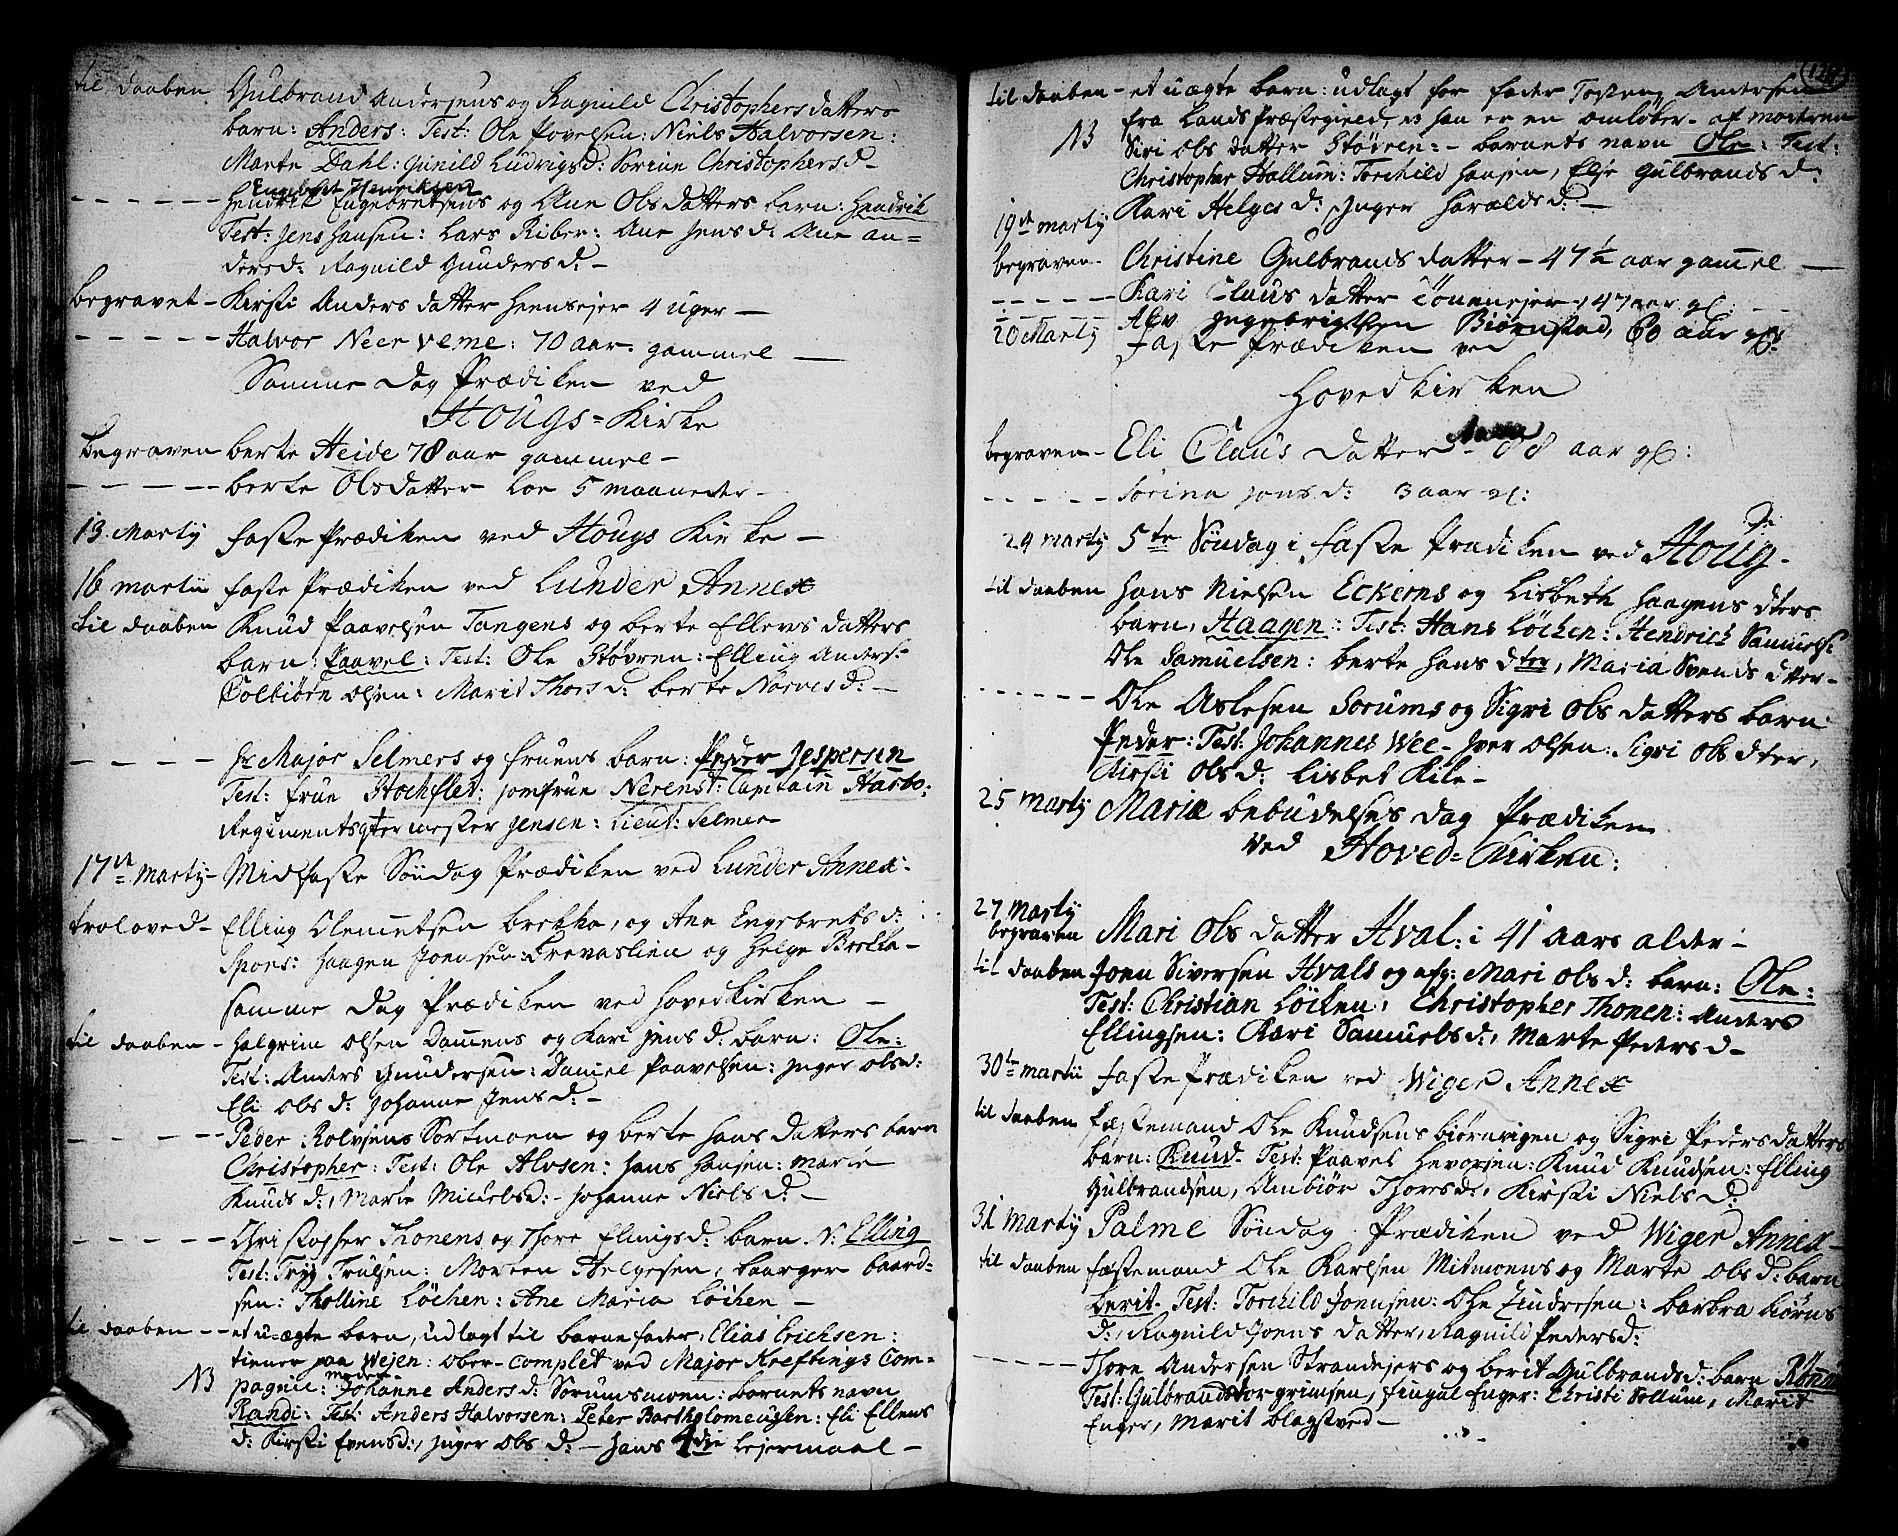 til daaben Gulbrand Andersens og Ragnild Christophersdatters
barn: Anders: Test: Ole Povelsen: Niels Halvorsen:
Marte Dahl: Gunild Ludvigsd: Sorine Christophersd –
Engebret Henriksen
- - - - - - Hendrik Engebretsens og Ane Olsdatters barn: Hendrik
Test: Jens Hansen: Lars Riber: Ane Jensd: Ane An=
dersd: Ragnild Gundersd: –
begravet – Kirsti Andersdatter Heensejer 4 uger –
- - - - - Halvor Neer Veme: 70 aar: gammel –
Samme Dag Prædiken ved
Hougs=Kirke
begraven berte Heide 78 aar gammel –
- - - - - berte Olsdatter Loe 5 maaneder –
13 Martij faste Prædiken ved Hougs Kirke –
16 martii faste Prædiken ved Lunder Annex
til daaben Knud Paavelsen Tangens og berte Ellevsdatters
barn: Paavel: Test: Ole Støvren: Elling Anders:
Colbiörn Olsen: Marit Thorsd: berte Narvesd: –
- - - - Hr Major Selmers og fruens barn: Peder Jespersen
Test: frue Stochflet: jomfrue Nerenst: Capitain Harbo:
Regimentsqtermester Jensen: Lieut: Selmer
17de Martij – Midfaste Søndag Prædiken ved Lunder Annex:
troloved – Elling Clemetsen brekka, og Ane Engebretsd:
Spons: Haagen Joensen: Trevaslien og Helge Brekka –
samme Dag Prædiken ved Hovedkirken –
til daaben – Halgrim Olsen Damens og Kari Jensd: barn: Ole:
Test: Anders Gundersen: Daniel Paavelsen: Inger Olsd:
Eli Olsd: Johanne Jensd: –
- - - - - Peder Rolvsens Sortmoen og berte Hansdatters barn
Christopher: Test: Ole Alvsen: Hans Hansen: Marie
Knudsd:, Marte Mickelsd: – Johanne Nielsd: –
- - - - - Christopher Thonens og Thore Elingsd: barn N: Elling
Test: Tryg Trulsen: Morten Helgesen, baarger baard=
sen: Tholline Löchen: Ane Maria Löchen –
til daaben – – et u=ægte barn, udlagt til barnefader, Elias Erichsen:
tiener paa Wejen: Ober-complet ved Major Kreftings Com=
moder
NB pagnie: Johanne Andersd: Sorumsmoen: barnets navn
Randi: Test: Anders Halvorsen: Peter Bartholomeusen: Eli Ellens
d: Kirsti Evensd:, Inger Olsd: – hans 4die Lejermaal –
til daaben – et uægte barn: udlagt for fader Andersen
NB fra Lands Præstegield, han er en omløber – af moderen
Siri Olsdatter Støvren: – barnets navn Ole: Test:
Christopher Hallum: Torchild Hansen, Else Gulbrandsd:
Kari Helgesd: Inger Haraldsd: –
19de martij
begraven – Christine Gulbrandsdatter – 47½ aar gammel –
- - - - - Kari Clausdatter 47 aar gl:
20 Martij Faste Prædiken ved Biørnstad, 60 aar gl:
Hovedkirken
begraven – Eli Clausdatter – 88 aar gl:
- - - - - Sorina Jonsd: 3 aar gl:
24 martij 5te Søndag i faste Prædiken ved Houg –
til daaben Hans Nielsen Eckerns og Lisbeth Haagensdters
barn, Haagen: Test: Hans Löchen: Hendrich Samuels:
Ole Samuelsen: berte Hansdter, Maria Svendsdtter –
- - - - - - Ole Aslesen Sorums og Sigri Olsdatters barn
Peder: Test: Johannes Wee – Iver Olsen: Sigri Olsdter,
Kirsti Olsd: Lisbet Kile –
25 Martij Mariæ bebudelses dag Prædiken
ved Hoved=Kirken:
27 Martij
begraven Mari Olsdatter Hval: i 41 aars alder –
til daaben Joen Siversen Hvals og afg: Mari Olsd: barn: Ole:
Test: Christian Löcken, Christopher Thonen: Anders
Ellingsen: Kari Samuelsd:, Marte Pedersd –
30te martii Faste Prædiken ved Wiger Annex
til daaben Fæstemand Ole Knudsens biørnvigen og Sigri Pedersdatters
barn: Knud – Test: Paavel Hevorsen: Knud Knudsen: Elling
Gulbrandsen, Ambiör Thoresd:, Kirsti Nielsd:
31 Martij Palme Søndag Prædiken ved Wiger Annex –
til daaben fæstemand Ole Karlsen Mitmoens og Marte Olsd: barn
berit – Test: Torchild Joensen: Ole Zindresen: barbra biørns
d:, Ragnild Joensdatter, Ragnild Pedersd:
- - - - - Thore Andersen Strandejers og berit Gulbrandsd: barn Rønnau
Test: Gulbrand Torgrimsen, Fingal Enger: Christi Sollum, Marit
Enger, Marit blagstved –